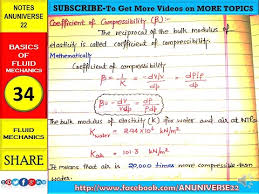 NOTES
ANUNIVERSE
22
SUBSCRIBE-To Get More Videos on MORE TOPICS
BASICS
OF
FLUID
MECHANICS
34
FLUID
MECHANICS
SHARE
Coefficient of Compressibility (β):-
The reciprocal of the bulk modulus of
elasticity is called coefficient of compressibility.
Mathematically
Coefficient of compressibility
β = 1/K = -dV/V / dP = dρ/ρ / dP
The bulk modulus of elasticity (K) for water and air at NTP
K water = 2.07 × 10⁶ kN/m²
K air = 101.3 kN/m²
It means that air is 20,000 times more compressible than
water.
http://www.facebook.com/ANUNIVERSE22